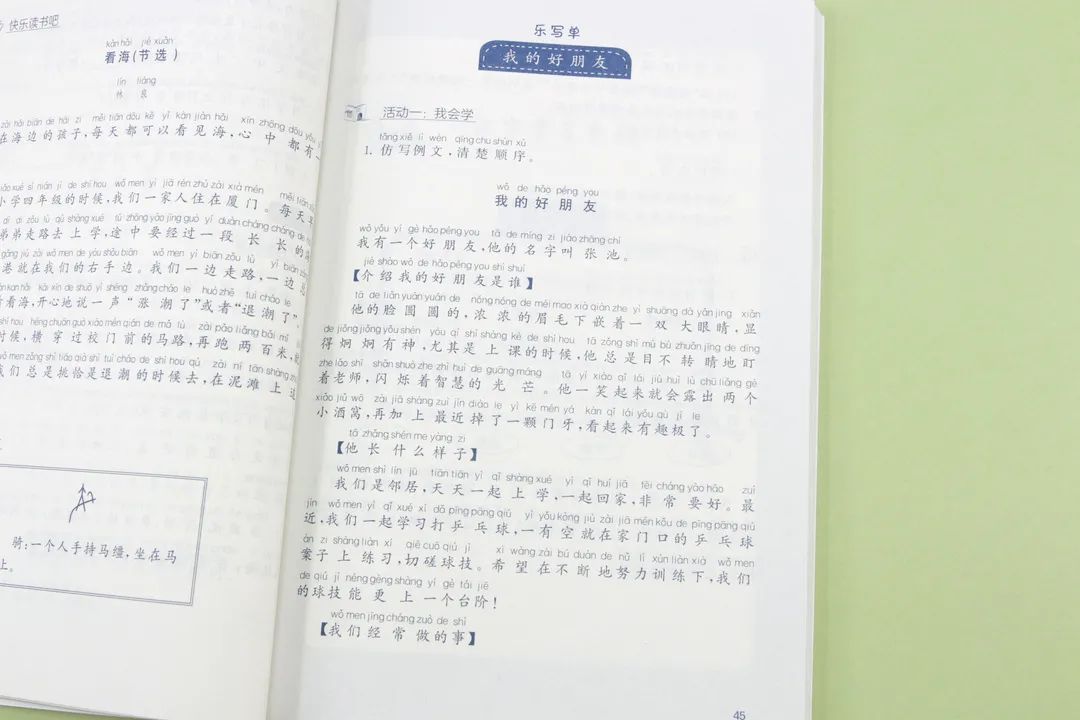 快乐读书吧
kàn hǎi jié xuǎn
看海(节选)
lín liáng
林良
zài hǎi biān de hái zi měi tiān dōu kě yǐ kàn jiàn hǎi xīn zhōng dōu yǒu
在海边的孩子,每天都可以看见海,心中都有一
xiǎo xué sì nián jí de shí hou wǒ men yì jiā rén zhù zài xià mén měi tiān
小学四年级的时候,我们一家人住在厦门。每天早
dì di zǒu lù qù shàng xué tú zhōng yào jīng guò yí duàn cháng cháng de
弟弟走路去上学,途中要经过一段长长的海
gǎng jiù zài wǒ men de yòu shǒu biān wǒ men yì biān zǒu lù yì biān
港就在我们的右手边。我们一边走路,一边
kàn hǎi kāi xīn de shuō yì shēng zhǎng cháo le huò zhě tuì cháo le
看海,开心地说一声“涨潮了”或者“退潮了”。
shí hou héng chuān guò xiào mén qián de mǎ lù zài pǎo liǎng bǎi mǐ
时候,横穿过校门前的马路,再跑两百米,
wǒ men zǒng shì tiāo qià shì tuì cháo de shí hou qù zài ní tān shàng
我们总是挑恰是退潮的时候去,在泥滩上
骑:一个人手持马缰,坐在马
上。
乐写单
我的好朋友
活动一:我会学
fǎng xiě lì wén qīng chu shùn xù
1. 仿写例文,清楚顺序。
wǒ de hǎo péng you
我的好朋友
wǒ yǒu yí gè hǎo péng you tā de míng zi jiào zhāng chí
我有一个好朋友,他的名字叫张池。
jiè shào wǒ de hǎo péng you shì shuí
【介绍我的好朋友是谁】
tā de liǎn yuán yuán de nóng nóng de méi mao xià qiàn zhe yì shuāng dà yǎn jing xiǎn
他的脸圆圆的,浓浓的眉毛下嵌着一双大眼睛,显
de jiǒng jiǒng yǒu shén yóu qí shì shàng kè de shí hou tā zǒng shì mù bù zhuǎn jīng de dīng
得炯炯有神,尤其是上课的时候,他总是目不转睛地盯
zhe lǎo shī shǎn shuò zhe zhì huì de guāng máng tā yí xiào qǐ lái jiù huì lù chū liǎng gè
着老师,闪烁着智慧的光芒。他一笑起来就会露出两个
xiǎo jiǔ wō zài jiā shàng zuì jìn diào le yì kē mén yá kàn qǐ lái yǒu qù jí le
小酒窝,再加上最近掉了一颗门牙,看起来有趣极了。
tā zhǎng shén me yàng zi
【他长什么样子】
wǒ men shì lín jū tiān tiān yì qǐ shàng xué yì qǐ huí jiā fēi cháng yào hǎo zuì
我们是邻居,天天一起上学,一起回家,非常要好。最
jìn wǒ men yì qǐ xué xí dǎ pīng pāng qiú yì yǒu kòng jiù zài jiā mén kǒu de pīng pāng qiú
近,我们一起学习打乒乓球,一有空就在家门口的乒乓球
àn zi shàng liàn xí qiē cuō qiú jì xī wàng zài bú duàn de nǔ lì xùn liàn xià wǒ men
案子上练习,切磋球技。希望在不断地努力训练下,我们
de qiú jì néng gèng shàng yí gè tái jiē
的球技能更上一个台阶!
wǒ men jīng cháng zuò de shì
【我们经常做的事】
45